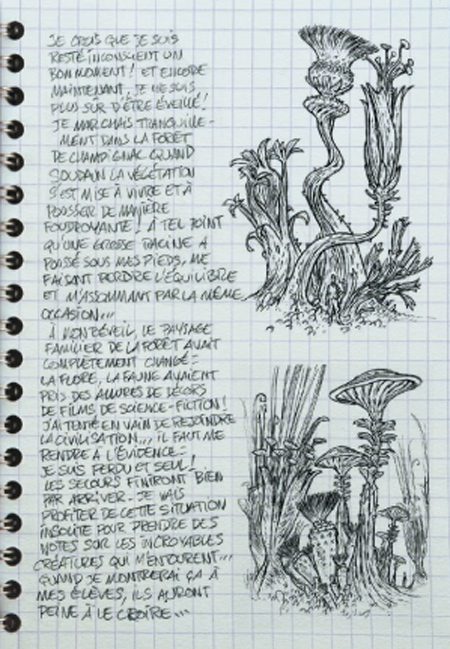 JE CROIS QUE JE SUIS
RESTÉ INCONSCIENT UN
BON MOMENT! ET ENCORE
MAINTENANT, JE NE SUIS
PLUS SÛR D'ÊTRE ÉVEILLÉ!
JE MARCHAIS TRANQUILLE-
MENT DANS LA FORÊT
DE CHAMPIGNAC QUAND
SOUDAIN LA VÉGÉTATION
S'EST MISE À VIVRE ET À
POUSSER DE MANIÈRE
FOUDROYANTE! À TEL POINT
QU'UNE GROSSE RACINE A
POUSSÉ SOUS MES PIEDS, ME
FAISANT PERDRE L'ÉQUILIBRE
ET M'ASSOMMANT PAR LA MÊME
OCCASION...
À MON RÉVEIL, LE PAYSAGE
FAMILIER DE LA FORÊT AVAIT
COMPLÈTEMENT CHANGÉ:
LA FLORE, LA FAUNE AVAIENT
PRIS DES ALLURES DE DÉCORS
DE FILMS DE SCIENCE-FICTION!
J'AI TENTÉ EN VAIN DE REJOINDRE
LA CIVILISATION... IL FAUT ME
RENDRE À L'ÉVIDENCE:
JE SUIS PERDU ET SEUL!
LES SECOURS FINIRONT BIEN
PAR ARRIVER. JE VAIS
PROFITER DE CETTE SITUATION
INSOLITE POUR PRENDRE DES
NOTES SUR LES INCROYABLES
CRÉATURES QUI M'ENTOURENT...
QUAND JE MONTRERAI ÇA À
MES ÉLÈVES, ILS AURONT
PEINE À LE CROIRE...